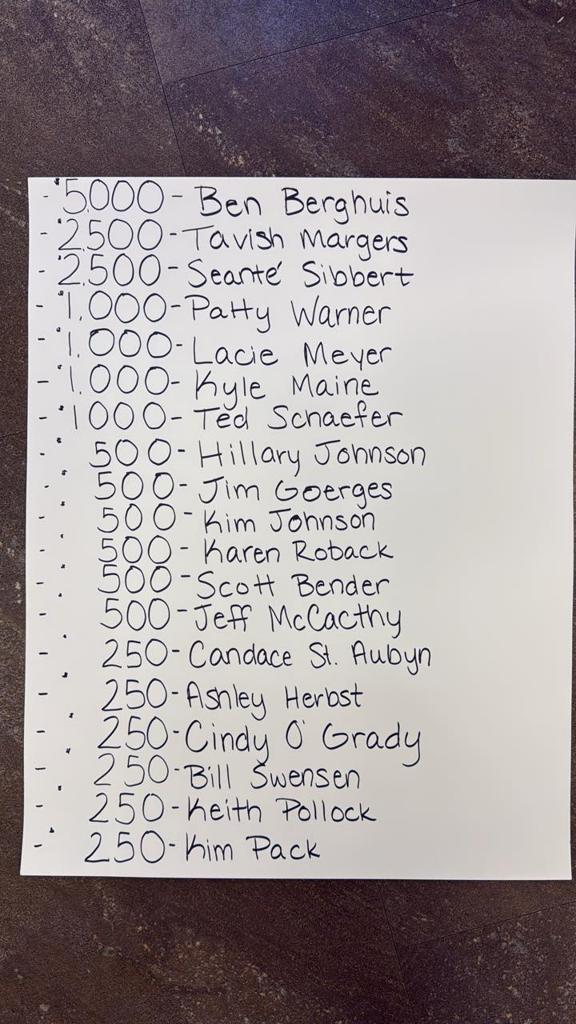 - 5,000 - Ben Berghuis
- 2,500 - Tavish Margers
- 2,500 - Seanté Sibbert
- 1,000 - Patty Warner
- 1,000 - Lacie Meyer
- 1,000 - Kyle Maine
- 1000 - Ted Schaefer
- 500 - Hillary Johnson
- 500 - Jim Goerges
- 500 - Kim Johnson
- 500 - Karen Roback
- 500 - Scott Bender
- 500 - Jeff McCacthy
- 250 - Candace St. Aubyn
- 250 - Ashley Herbst
- 250 - Cindy O' Grady
- 250 - Bill Swensen
- 250 - Keith Pollock
- 250 - Kim Pack